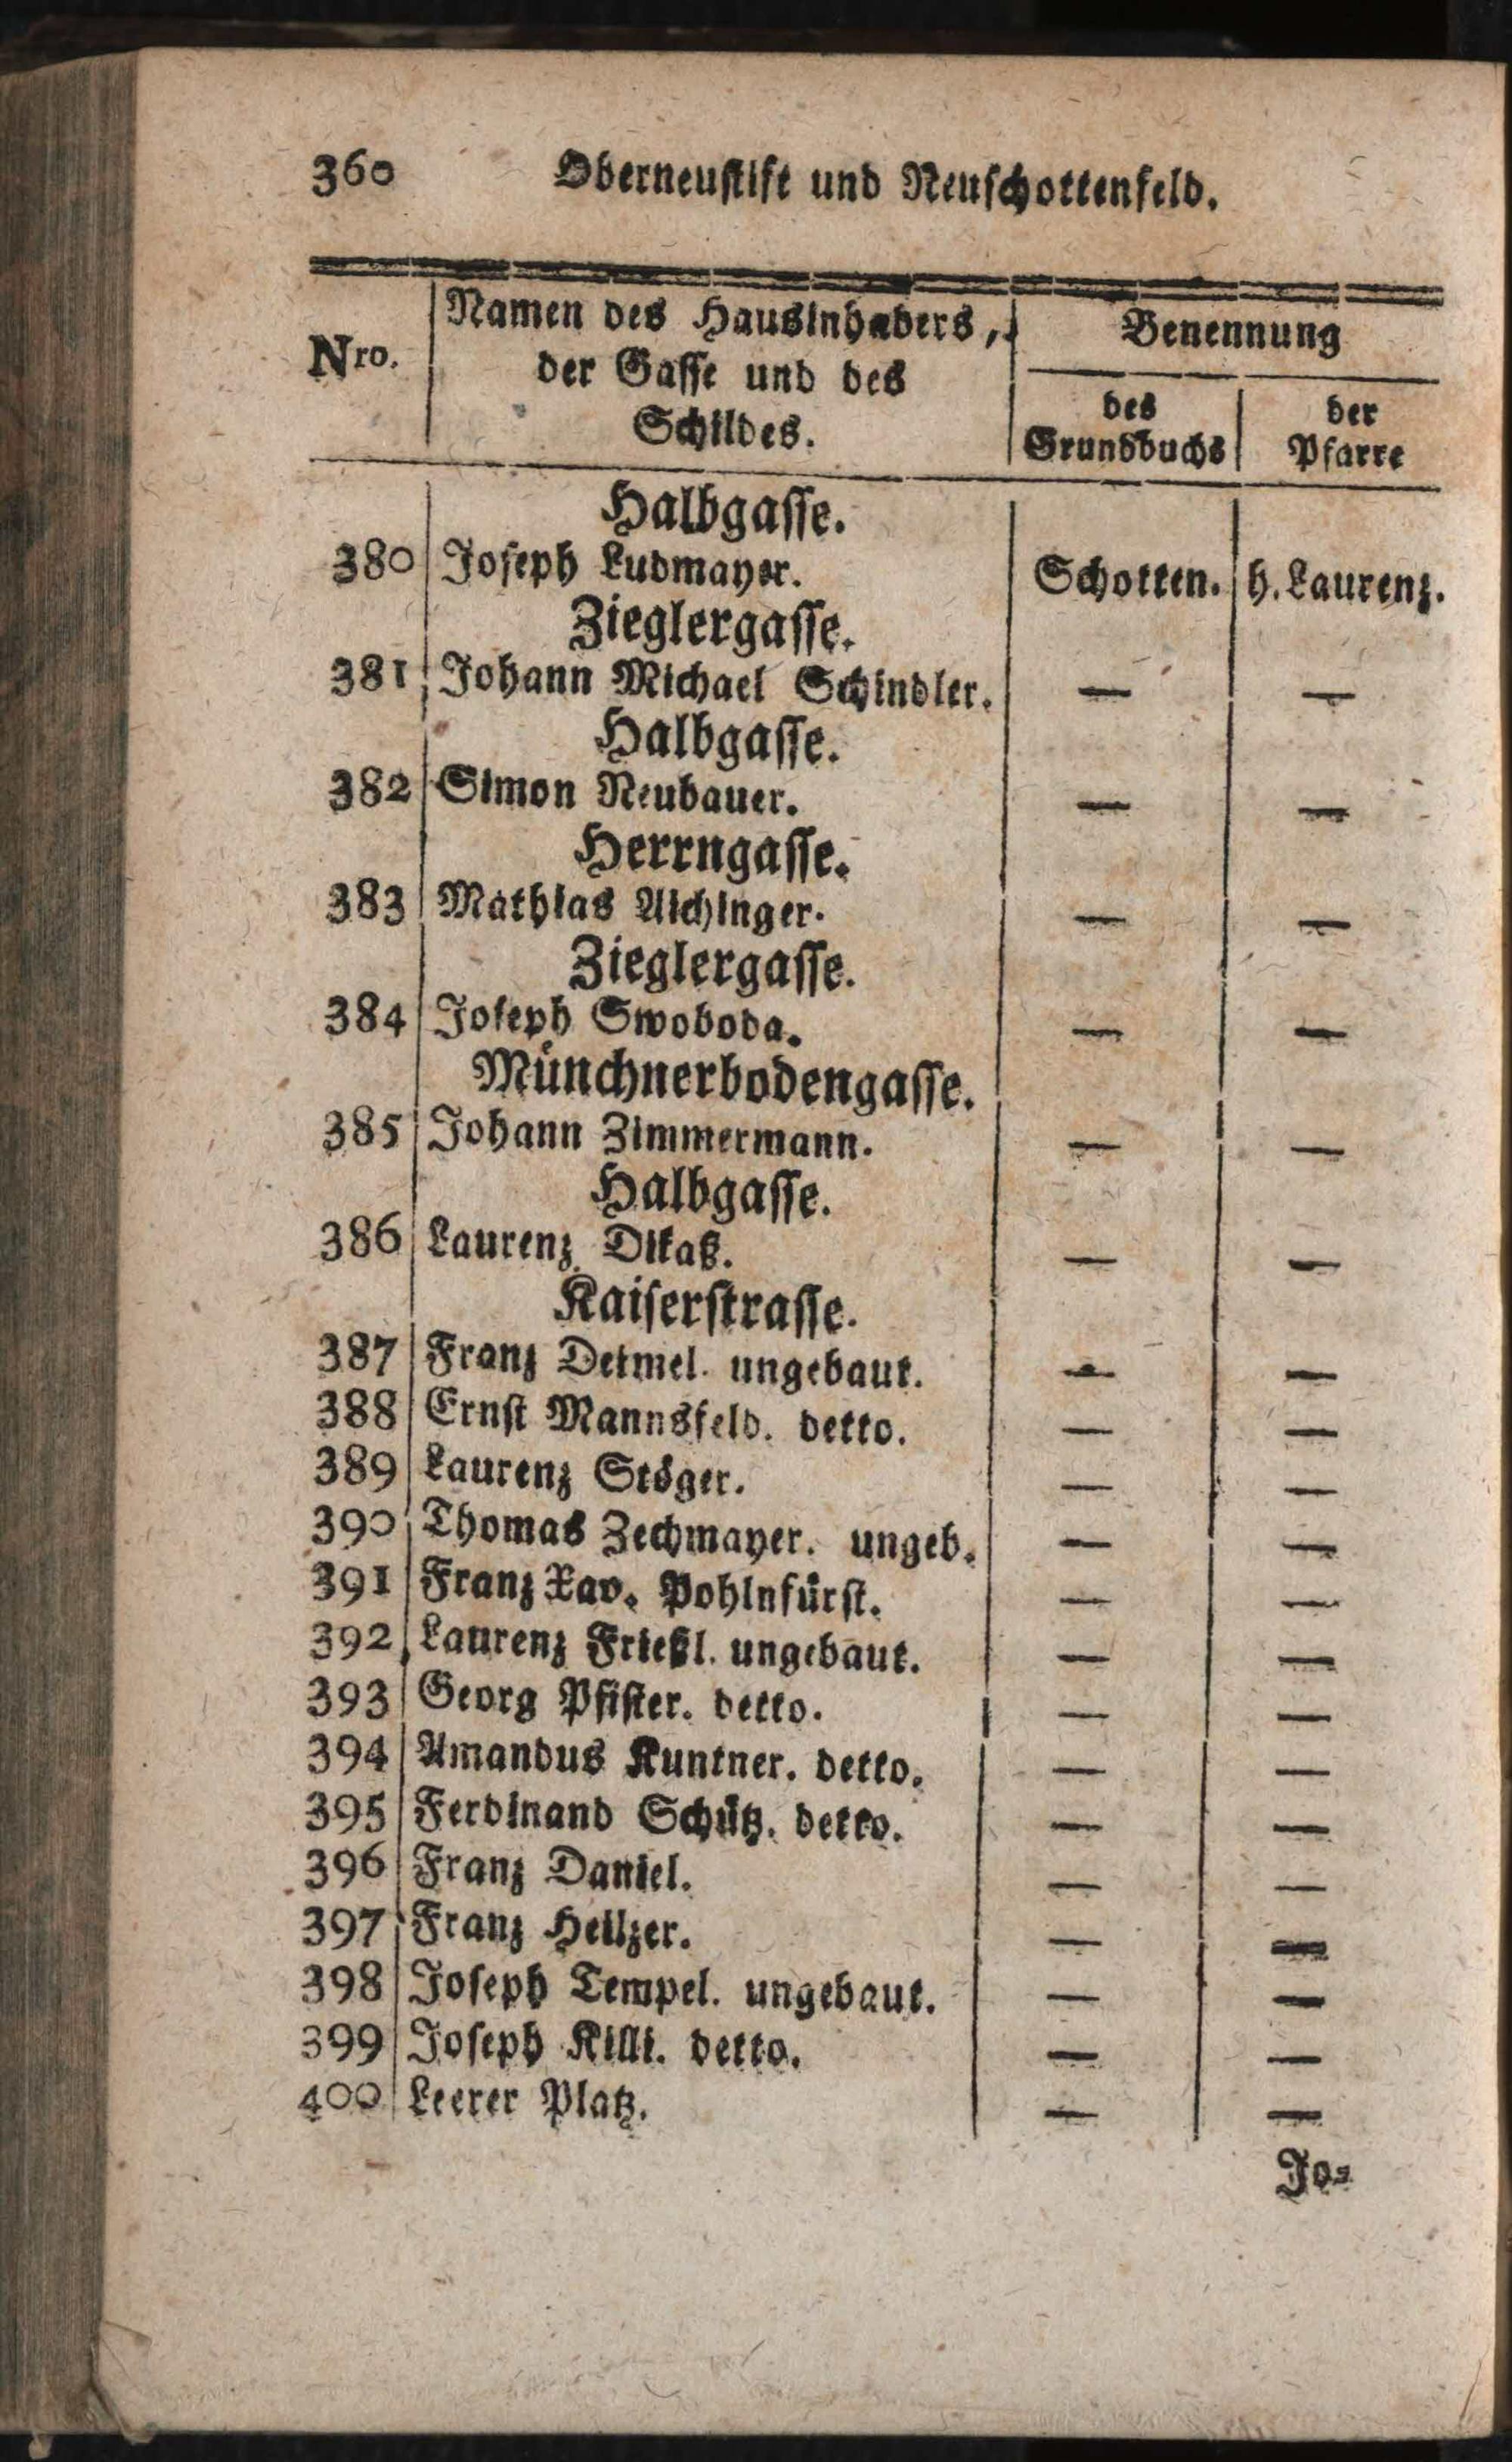 360 Oberneustift und Neuschottenfeld.
Nro. Namen des Hausinhabers, der Gasse und des Schildes. Benennung
des Grundbuchs der Pfarre
Halbgasse.
380 Joseph Ludmayer. Schotten. h. Laurenz.
Zieglergasse.
381 Johann Michael Schindler. — —
Halbgasse.
382 Simon Neubauer. — —
Herrngasse.
383 Mathias Aichinger. — —
Zieglergasse.
384 Joseph Swoboda. — —
Münchnerbodengasse.
385 Johann Zimmermann. — —
Halbgasse.
386 Laurenz Dikaß. — —
Kaiserstrasse.
387 Franz Detmel. ungebaut. — —
388 Ernst Mannsfeld. detto. — —
389 Laurenz Stöger. — —
390 Thomas Zechmayer. ungeb. — —
391 Franz Xav. Pohlnfürst. — —
392 Laurenz Frießl. ungebaut. — —
393 Georg Pfister. detto. — —
394 Amandus Kuntner. detto. — —
395 Ferdinand Schütz. detto. — —
396 Franz Daniel. — —
397 Franz Heilzer. — —
398 Joseph Tempel. ungebaut. — —
399 Joseph Killi. detto. — —
400 Leerer Platz. — —
Jo=